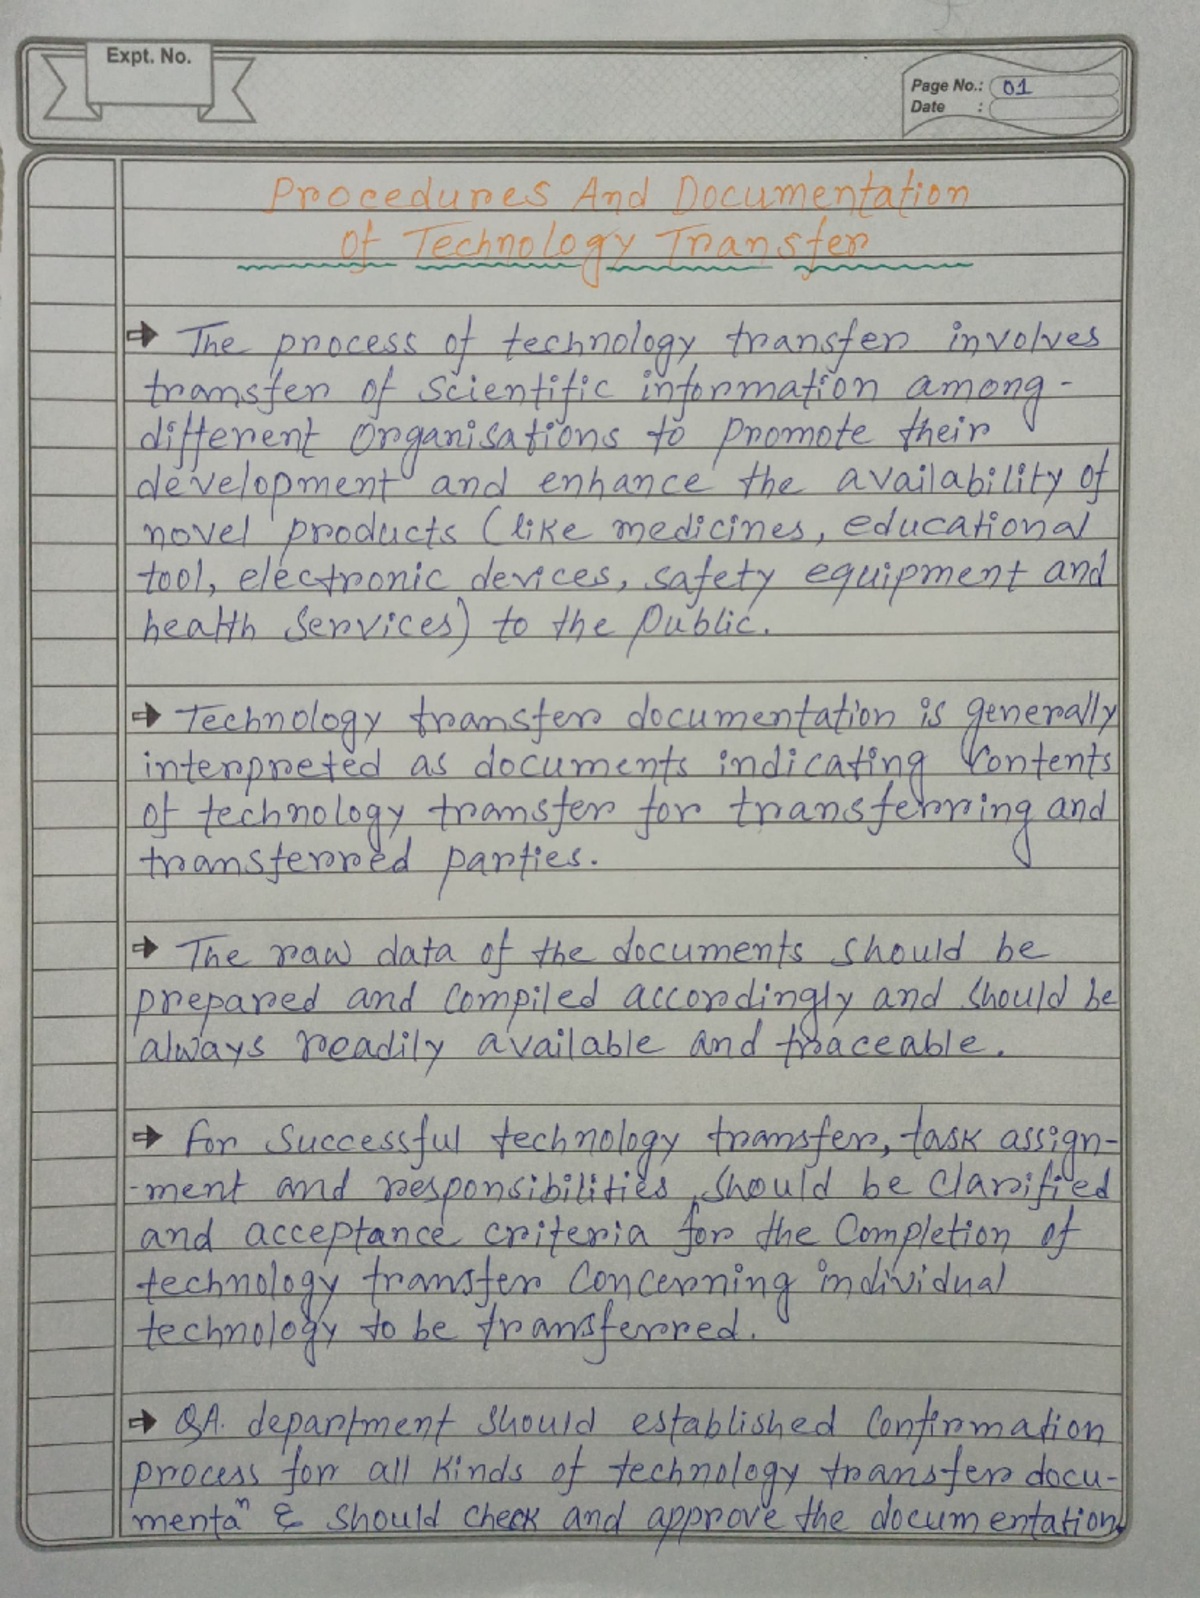 Expt. No.
Page No.: 01
Date :
Procedures And Documentation
of Technology Transfer
➔ The process of technology transfer involves
transfer of scientific information among-
different organisations to promote their
development and enhance the availability of
novel products (like medicines, educational
tool, electronic devices, safety equipment and
health services) to the public.
➔ Technology transfer documentation is generally
interpreted as documents indicating contents
of technology transfer for transferring and
transferred parties.
➔ The raw data of the documents should be
prepared and compiled accordingly and should be
always readily available and traceable.
➔ For successful technology transfer, task assign-
-ment and responsibilities should be clarified
and acceptance criteria for the completion of
technology transfer concerning individual
technology to be transferred.
➔ QA. department should established confirmation
process for all kinds of technology transfer docu-
mentaⁿ & should check and approve the documentation.